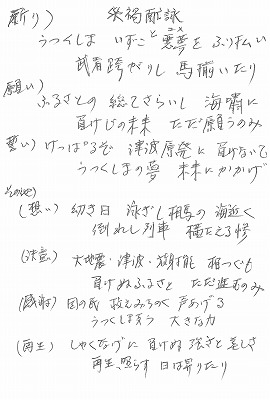 祈り) 災禍献詠
うつくしま いずこと悪夢を ふり払い
武者跨がりし 馬揃いたり
願い)
ふるさとの 総てさらいし 海嘯に
負けじの未来 ただ願うのみ
誓い) けっぱるぞ 津波原発に 負けないで
うつくしまの夢 未来にかかげ
その他)
(想い) 幼き日 泳ぎし相馬の 海近く
倒れし列車 横たえる惨
(決意) 大地震・津波・放射能 相つぐも
負けぬふるさと ただ進むのみ
国の民 救えみちのく 声あげる
うつくしま 大きな力
(再生) しゃくなげに 負けぬ強さと 美しさ
再生、照らす 日は昇りたり